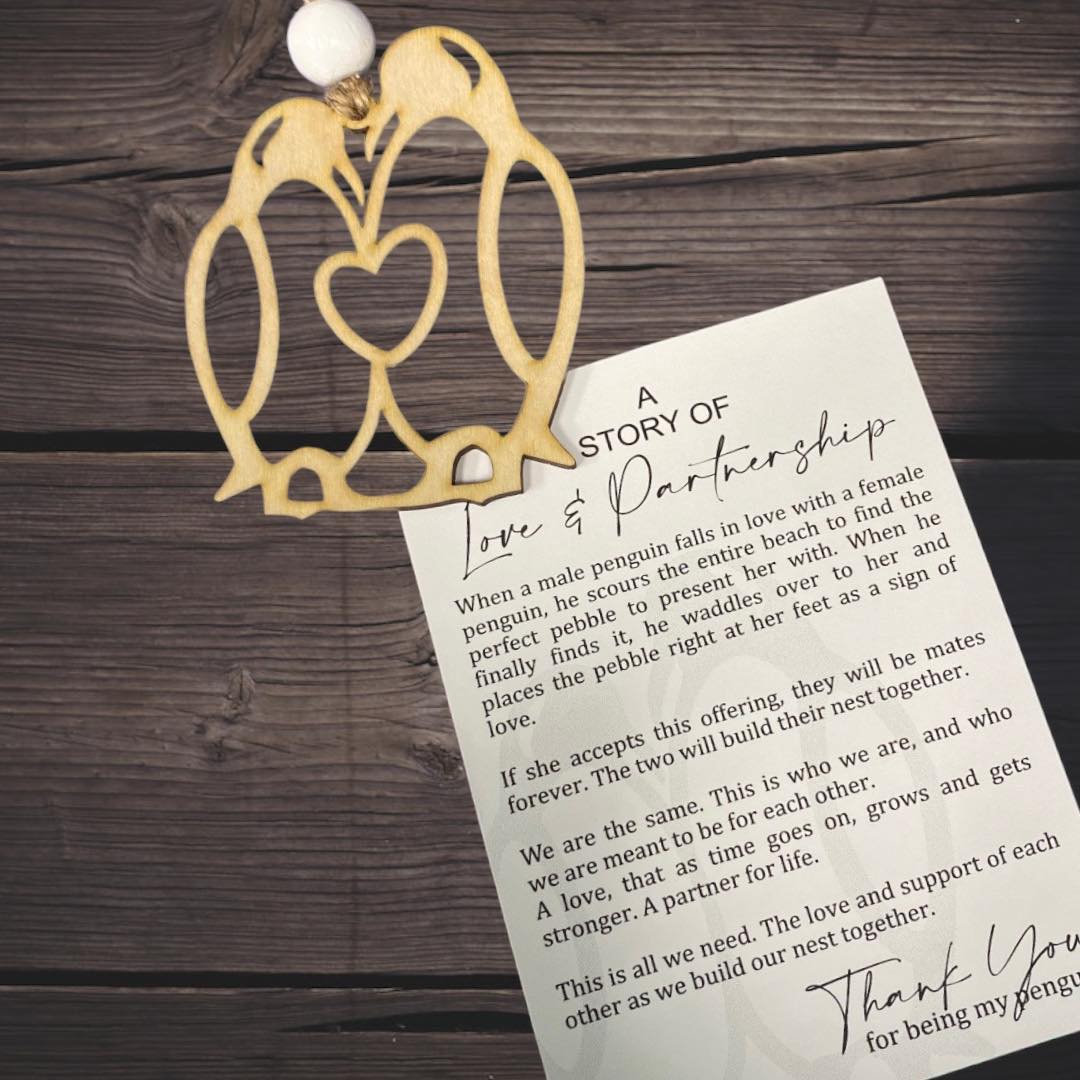 A
STORY OF
Love & Partnership
When a male penguin falls in love with a female
penguin, he scours the entire beach to find the
perfect pebble to present her with. When he
finally finds it, he waddles over to her and
places the pebble right at her feet as a sign of
love.
If she accepts this offering, they will be mates
forever. The two will build their nest together.
We are the same. This is who we are, and who
we are meant to be for each other.
A love, that as time goes on, grows and gets
stronger. A partner for life.
This is all we need. The love and support of each
other as we build our nest together.
Thank You
for being my pengu